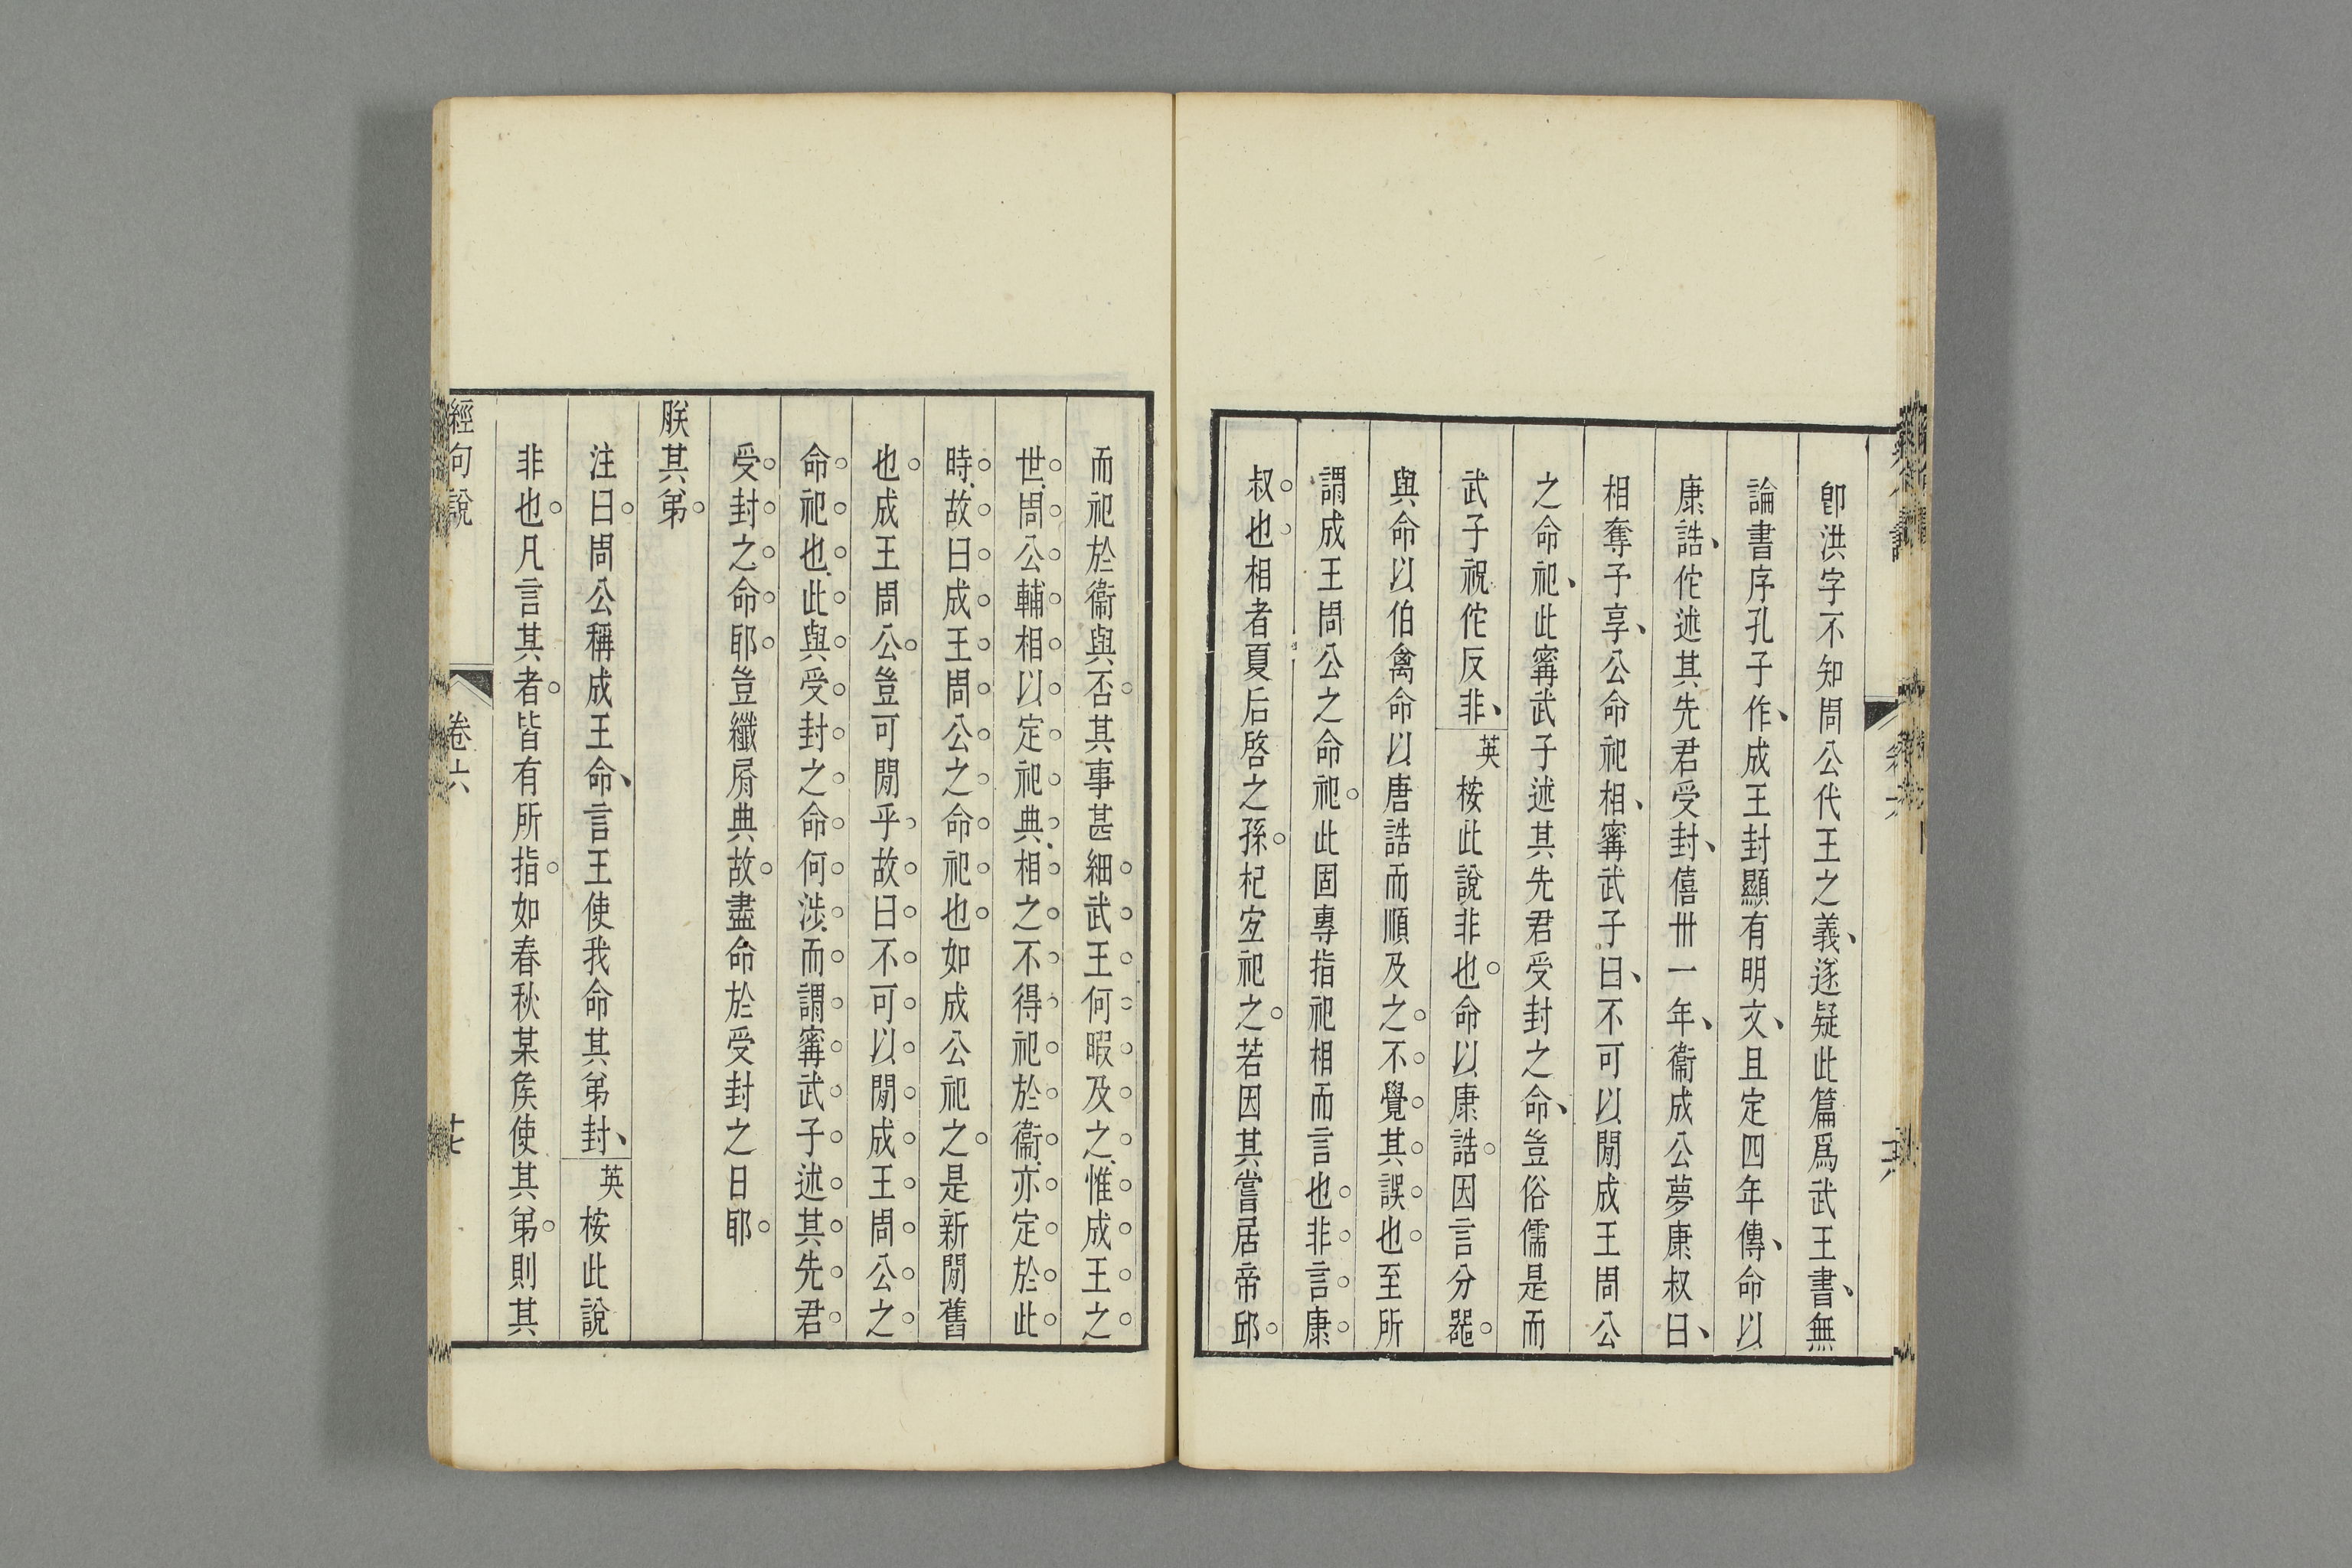 卽洪字不知周公代王之義、遂疑此篇爲武王書、無
論書序孔子作、成王封顯有明文、且定四年傳、命以
康誥、佗述其先君受封、僖卅一年、衞成公夢康叔曰、
相奪予享、公命祀相、寗武子曰、不可以閒成王周公
之命祀、此寗武子述其先君受封之命、豈俗儒是而
武子祝佗反非、英桉此說非也命以康誥因言分器
與命以伯禽命以唐誥而順及之不覺其誤也至所
謂成王周公之命祀此固專指祀相而言也非言康
叔也相者夏后啓之孫杞宜祀之若因其嘗居帝邱
而祀於衞與否其事甚細武王何暇及之惟成王之
世周公輔相以定祀典相之不得祀於衞亦定於此
時故曰成王周公之命祀也如成公祀之是新閒舊
也成王周公豈可閒乎故曰不可以閒成王周公之
命祀也此與受封之命何涉而謂寗武子述其先君
受封之命耶豈纖屑典故盡命於受封之日耶
朕其弟
注曰周公稱成王命、言王使我命其弟封、英桉此說
非也凡言其者皆有所指如春秋某矦使其弟則其
經句說
卷六